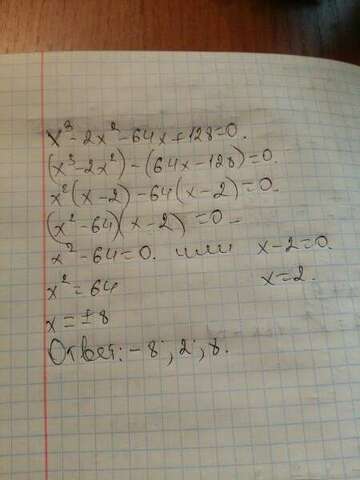 x³-2x²-64x+128=0.
(x³-2x²)-(64x-128)=0.
x²(x-2)-64(x-2)=0.
(x²-64)(x-2)=0.
x²-64=0. или x-2=0.
x²=64 x=2.
x=±8
Ответ: -8; 2; 8.